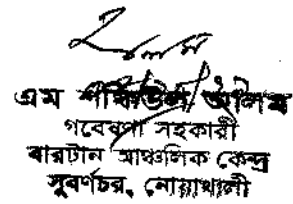 এম শফিউল আলম
গবেষণা সহকারী
বারটান আঞ্চলিক কেন্দ্র
সুবর্ণচর, নোয়াখালী